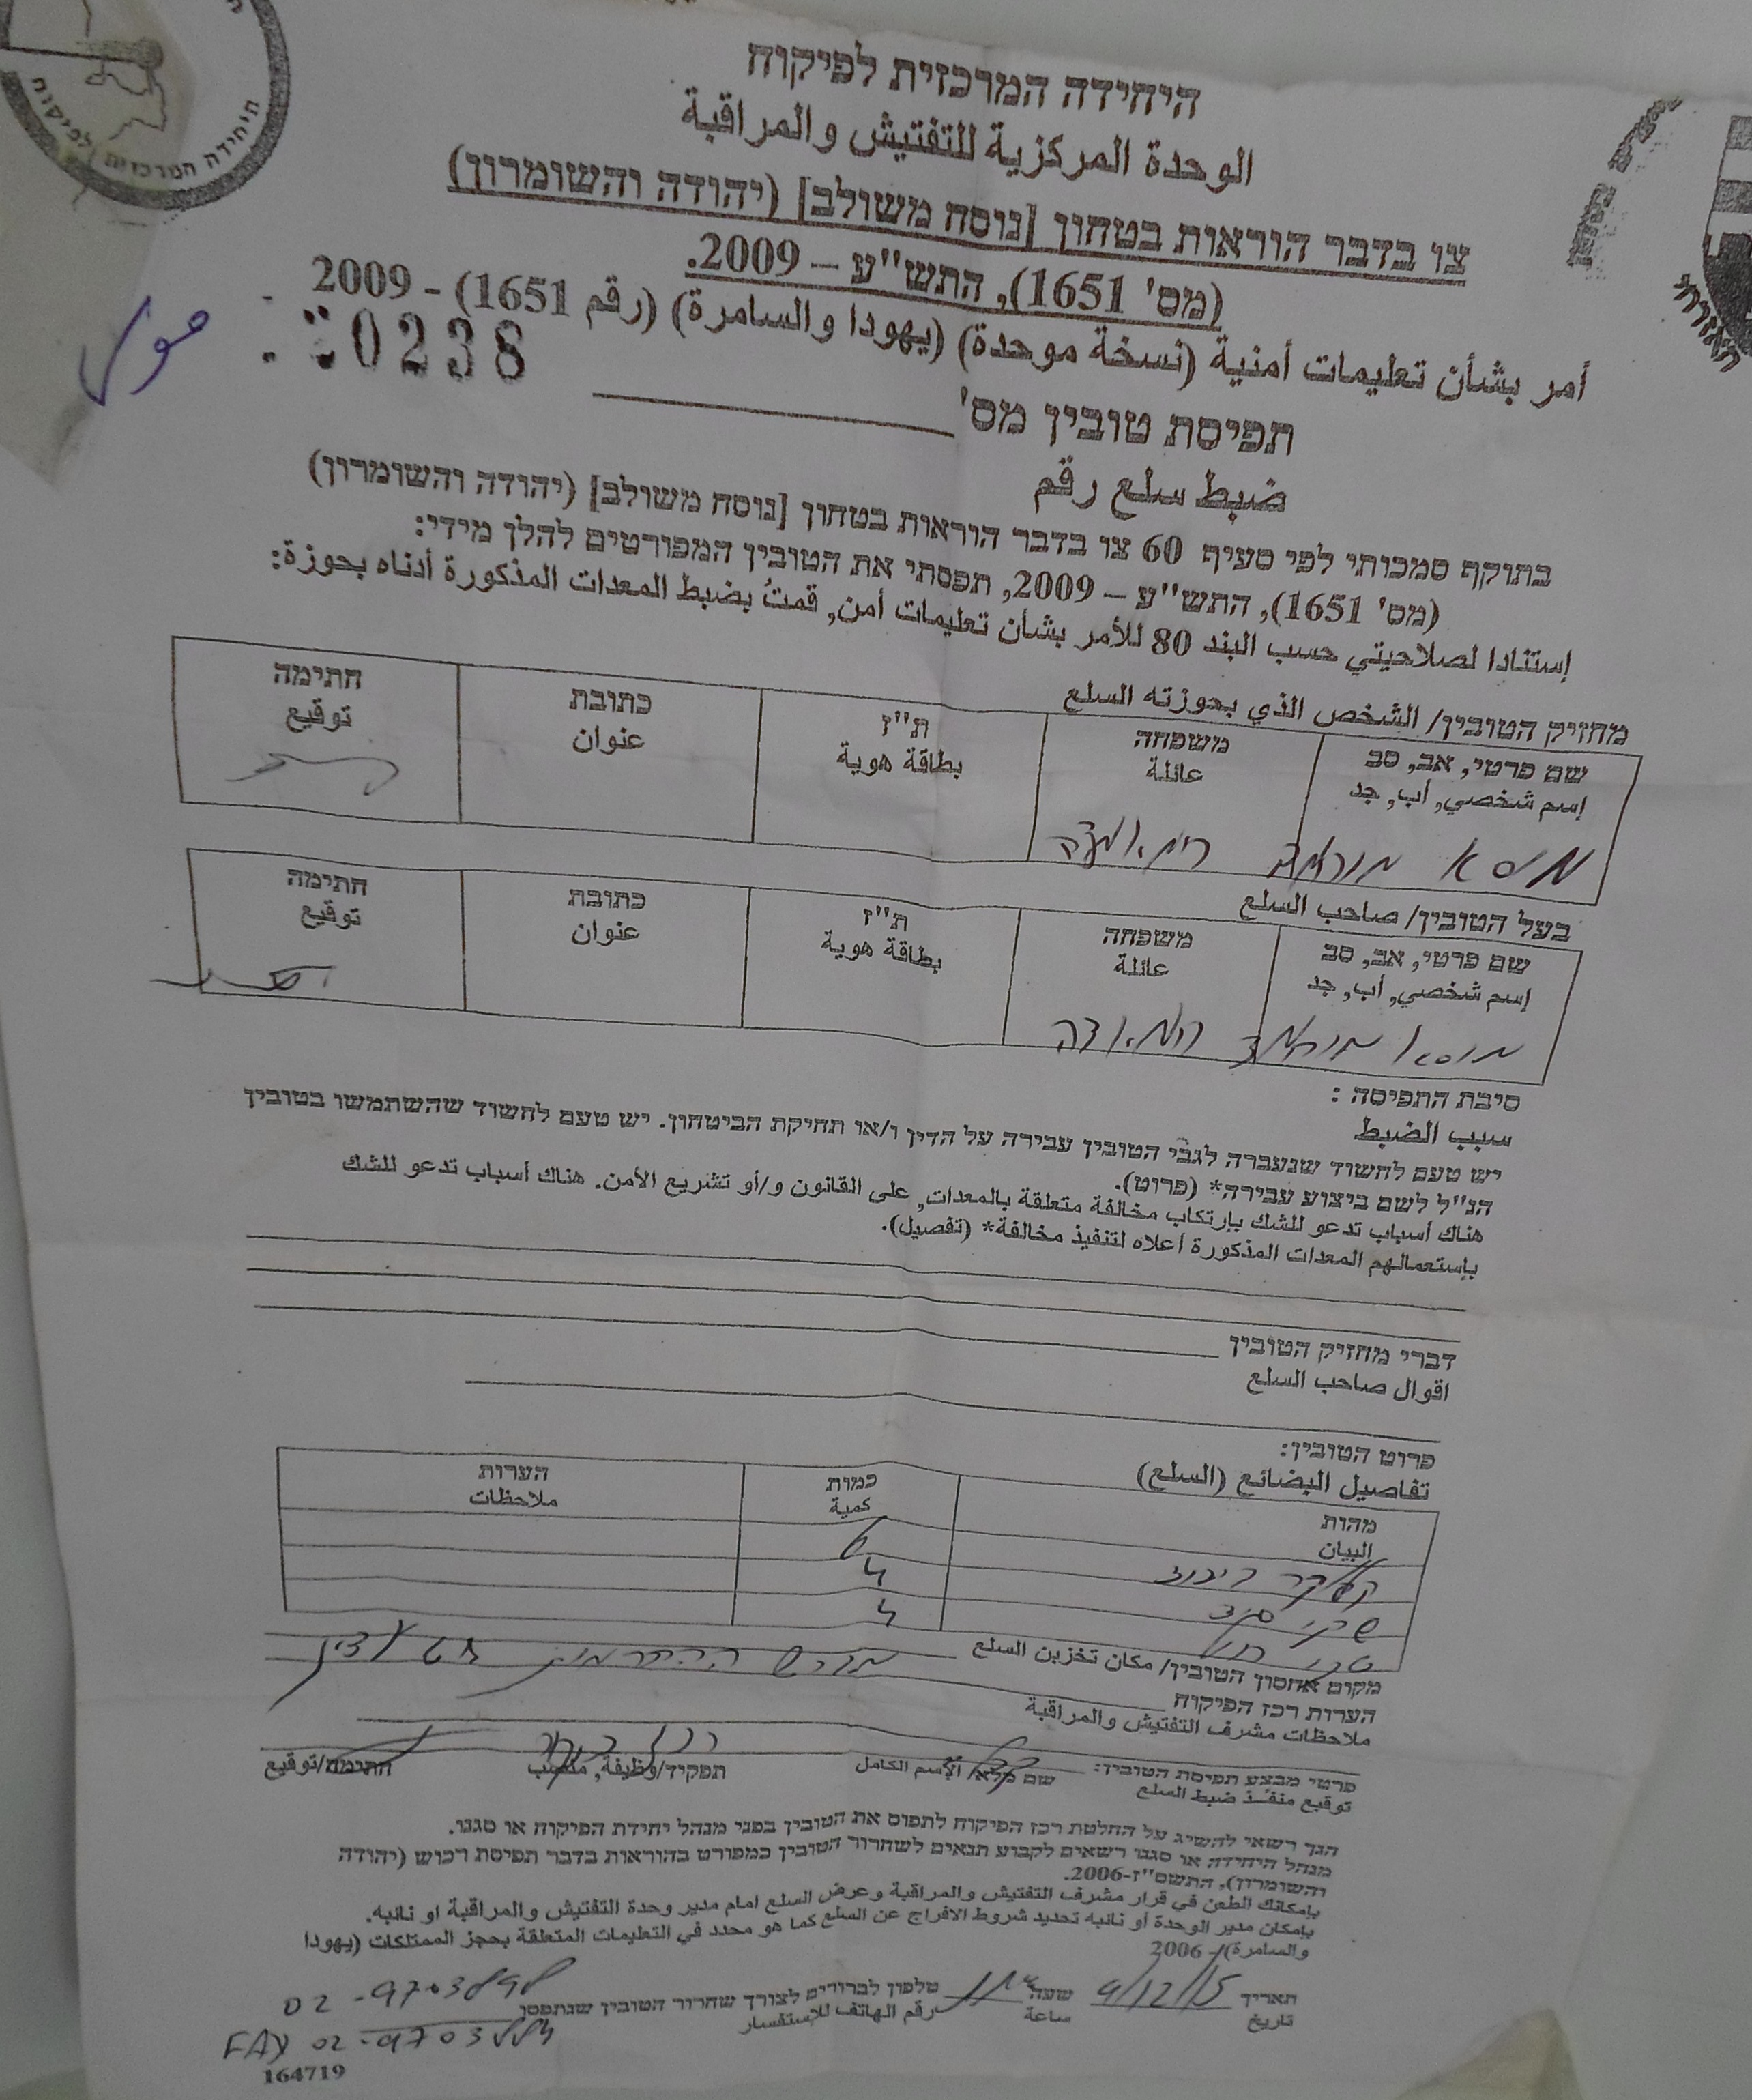 היחידה המרכזית לפיקוח
היחידה המרכזית לפיקוח
الوحدة المركزية للتفتيش والمراقبة
צו בדבר הוראות בטחון [נוסח משולב] (יהודה והשומרון)
(מס' 1651), התש"ע – 2009.
أمر بشأن تعليمات أمنية (نسخة موحدة) (يهودا والسامرة) (رقم 1651) - 2009
0238
תפיסת טובין מס'
ضبط سلع رقم
בתוקף סמכותי לפי סעיף 60 צו בדבר הוראות בטחון [נוסח משולב] (יהודה והשומרון)
(מס' 1651), התש"ע – 2009, תפסתי את הטובין המפורטים להלן מידי:
إستنادا لصلاحيتي حسب البند 80 للأمر بشأن تعليمات أمن, قمتُ بضبط المعدات المذكورة أدناه بحوزة:
מחזיק הטובין/ الشخص الذي بحوزته السلع
שם פרטי, אב, סב משפחה ת"ז כתובת חתימה
إسم شخصي, أب, جد عائلة بطاقة هوية عنوان توقيع
בעל הטובין/ صاحب السلع
שם פרטי, אב, סב משפחה ת"ז כתובת חתימה
إسم شخصي, أب, جد عائلة بطاقة هوية عنوان توقيع
סיבת התפיסה :
سبب الضبط
יש טעם לחשוד שנעברה לגבי הטובין עבירה על הדין ו/או תחיקת הביטחון. יש טעם לחשוד שהשתמשו בטובין
הנ"ל לשם ביצוע עבירה* (פרוט).
هناك أسباب تدعو للشك بإرتكاب مخالفة متعلقة بالمعدات, على القانون و/أو تشريع الأمن. هناك أسباب تدعو للشك
بإستعمالهم المعدات المذكورة أعلاه لتنفيذ مخالفة* (تفصيل).
דברי מחזיק הטובין
اقوال صاحب السلع
פרוט הטובין:
تفاصيل البضائع (السلع)
מהות כמות הערות
البيان كمية ملاحظات
6
4
4
מקום אחסון הטובין/ مكان تخزين السلع
הערות רכז הפיקוח
ملاحظات مشرف التفتيش والمراقبة
פרטי מבצע תפיסת הטובין: שם מלא/ الإسم الكامل תפקיד/وظيفة, منصب חתימה/توقيع
توقيع منفذ ضبط السلع
הנך רשאי להשיג על החלטת רכז הפיקוח לתפוס את הטובין בפני מנהל יחידת הפיקוח או סגנו.
מנהל היחידה או סגנו רשאים לקבוע תנאים לשחרור הטובין כמפורט בהוראות בדבר תפיסת רכוש (יהודה
והשומרון), התשס"ז-2006.
بإمكانك الطعن في قرار مشرف التفتيش والمراقبة وعرض السلع امام مدير وحدة التفتيش والمراقبة او نائبه.
بإمكان مدير الوحدة أو نائبه تحديد شروط الافراج عن السلع كما هو محدد في التعليمات المتعلقة بحجز الممتلكات (يهودا
والسامرة) - 2006
תאריך 9/12/15 שעה טלפון לברורים לצורך שחרור הטובין שנתפסו
تاريخ ساعة رقم الهاتف للإستفسار
164719